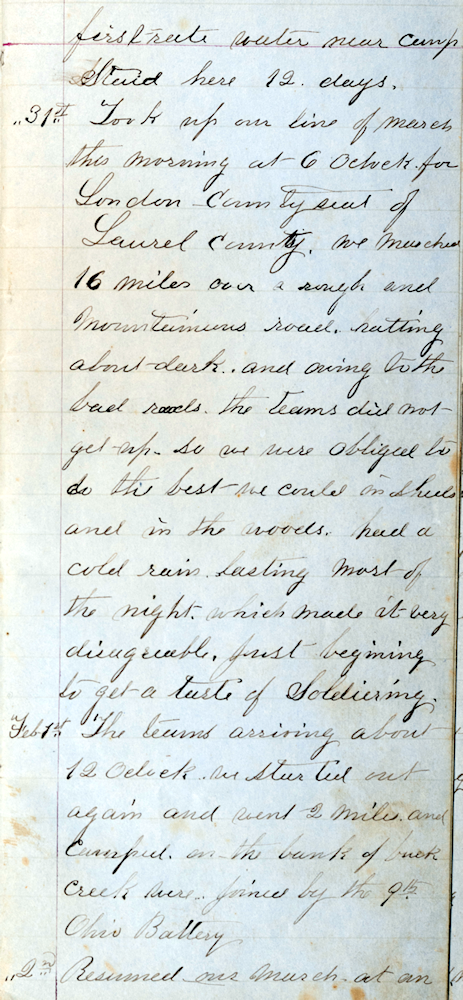 first rate water near camp
Staid here 12 days.
„ 31st Took up our line of march
this morning at 6 Oclock for
London County seat of
Laurel County, we marched
16 miles over a rough and
Mountainious road. halting
about dark. and owing to the
bad roads the teams did not
get up. so we were obliged to
do the best we could in sheds
and in the woods. had a
cold rain lasting most of
the night. which made it very
disagreeable. Just begining
to get a taste of Soldiering.
Feb 1st The teams arriving about
12 Oclock. we started out
again and went 2 miles. and
Camped. on the bank of buck
Creek were. joined by the 9th
Ohio Battery
„ 2nd Resumed our march at an